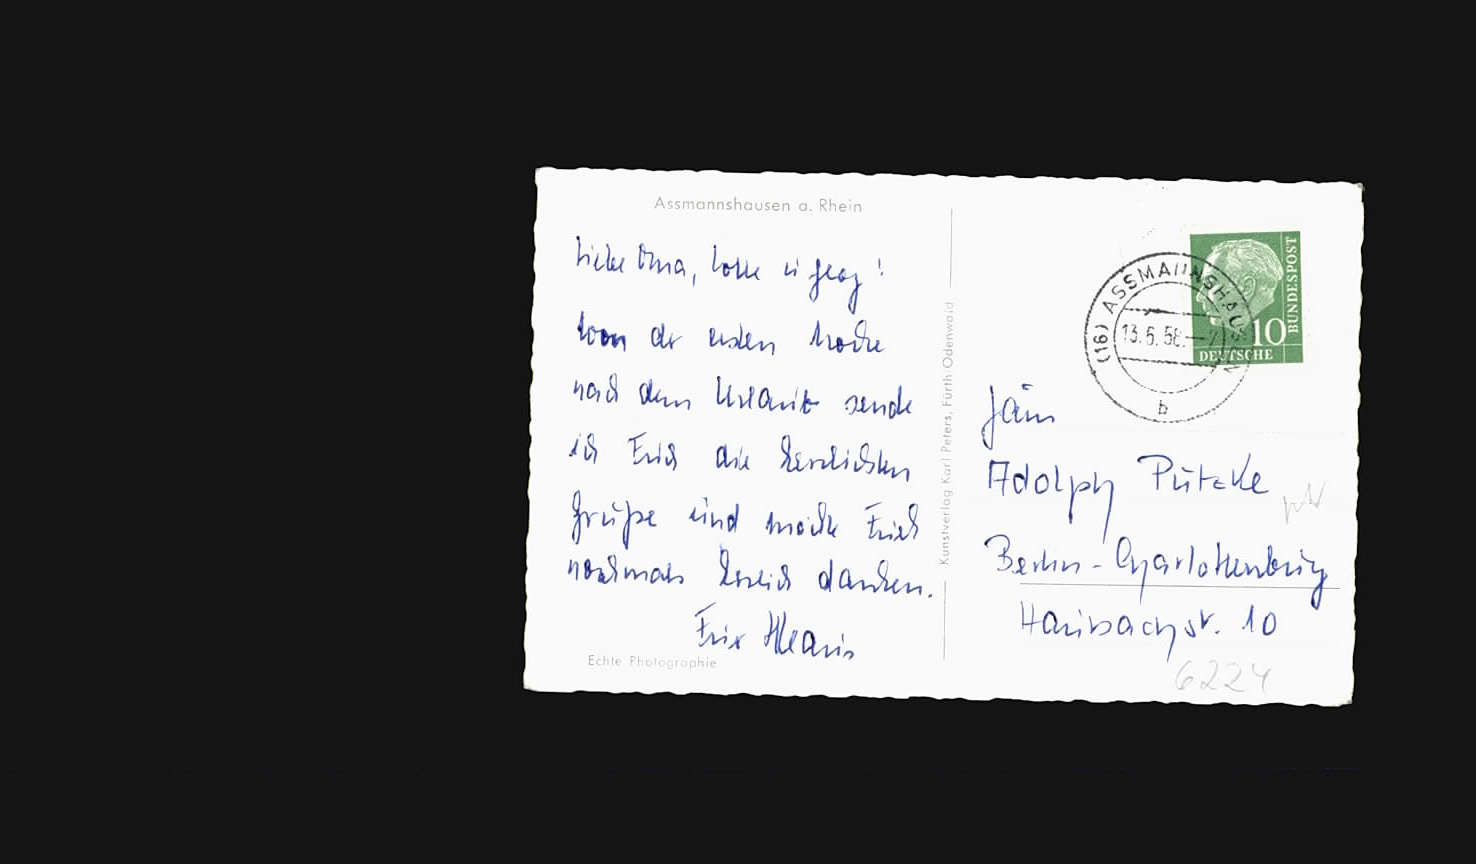 Assmannshausen a. Rhein
Liebe Oma, Lotte u. Georg!
Von der ersten Woche
nach dem Urlaub sende
ich Euch die herzlichsten
Grüße und möchte Euch
nochmals herzlich danken.
Euer Klaus
Echte Photographie
Kunstverlag Karl Peters, Fürth/Odenwald
(16) ASSMANNSHAUSEN
13.6.58
b
10
DEUTSCHE
BUNDESPOST
Fam
Adolph
Berlin-Charlottenburg
10
6224